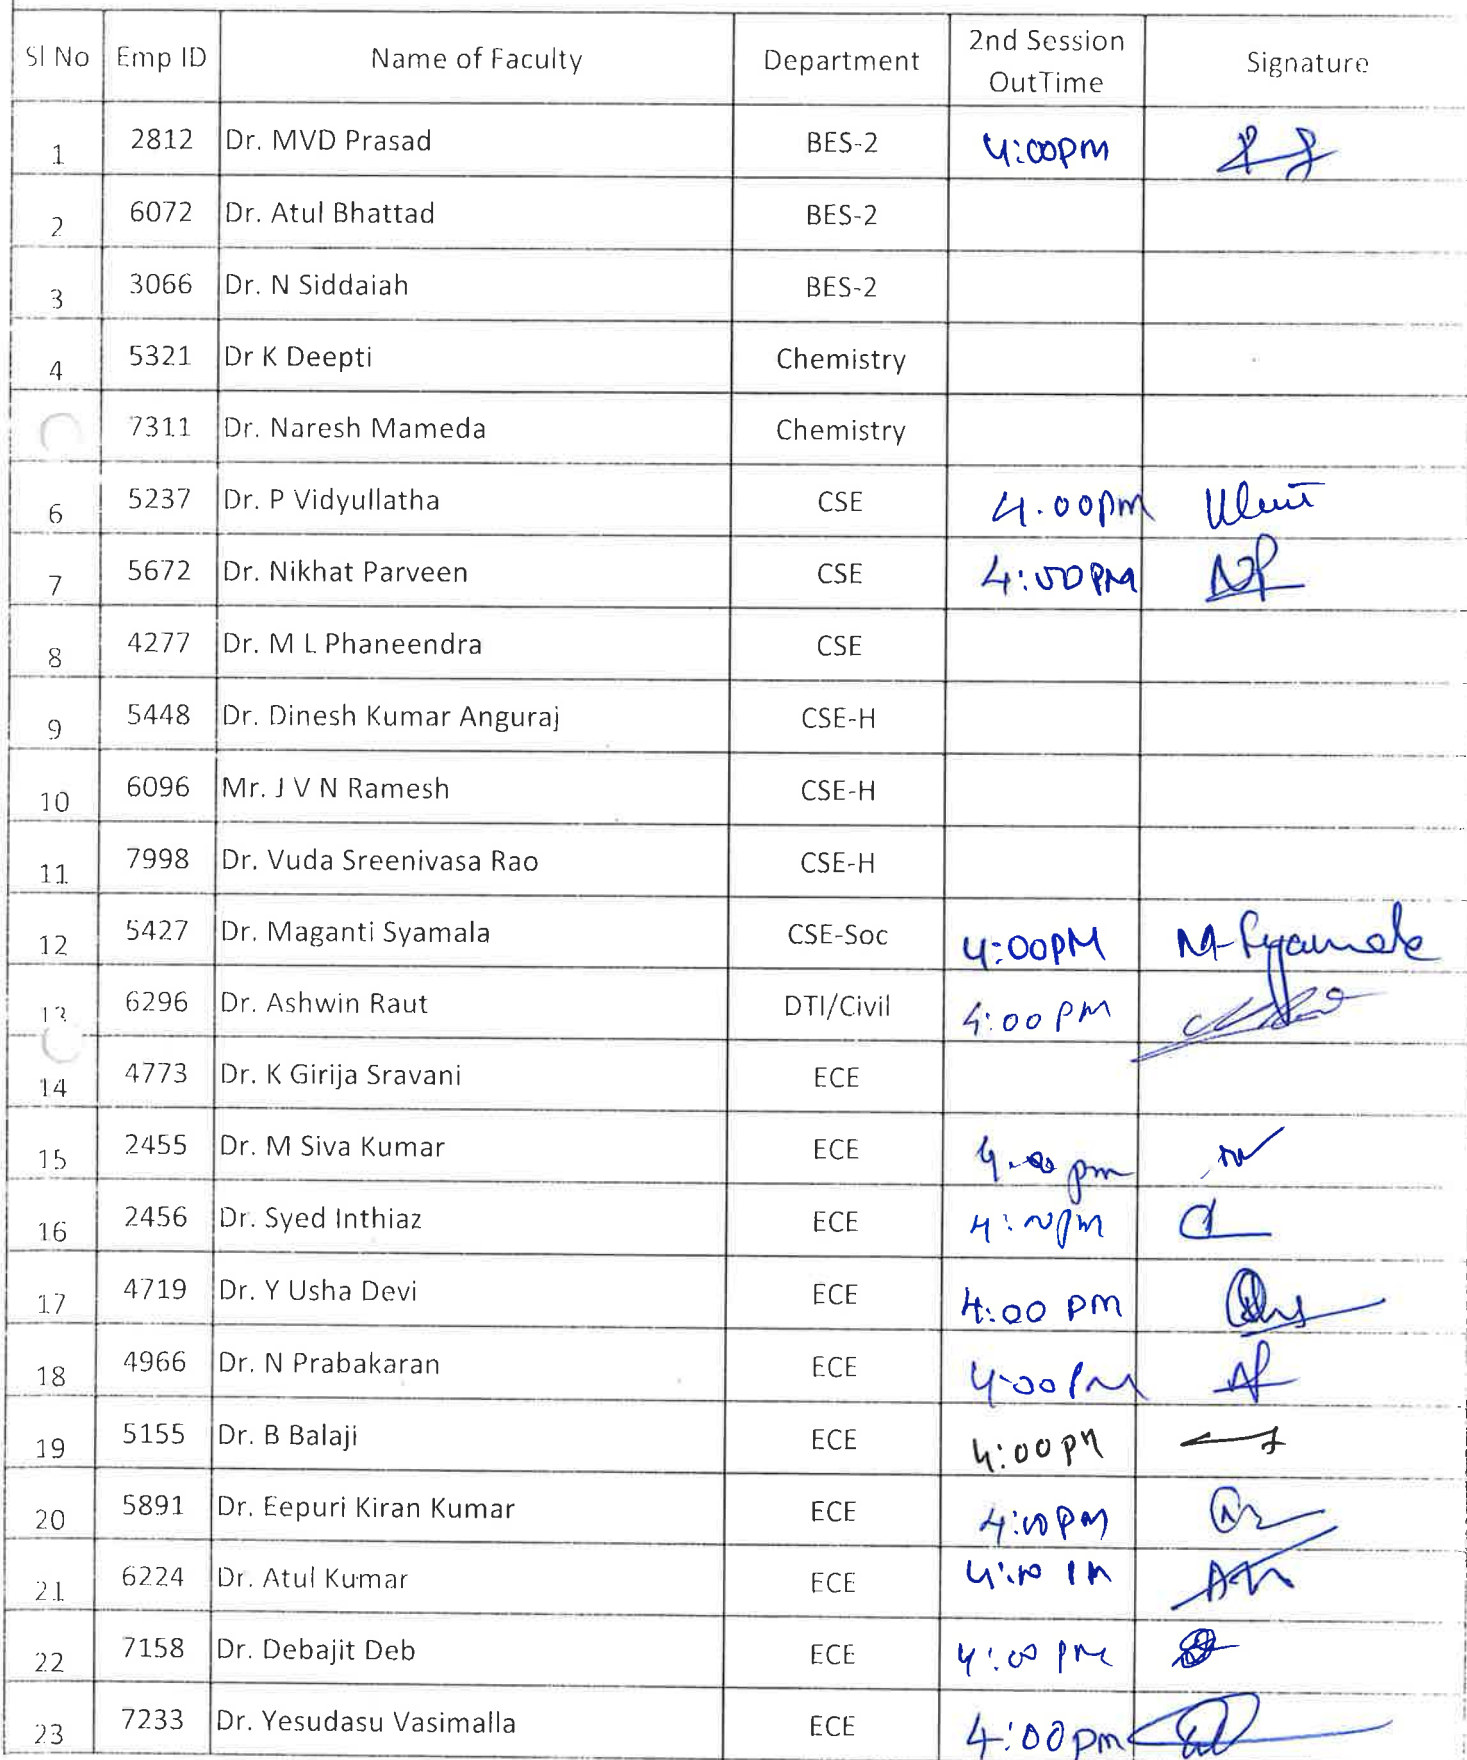 Sl No Emp ID Name of Faculty Department 2nd Session OutTime Signature
1 2812 Dr. MVD Prasad BES-2 4:00pm
2 6072 Dr. Atul Bhattad BES-2
3 3066 Dr. N Siddaiah BES-2
4 5321 Dr K Deepti Chemistry
7311 Dr. Naresh Mameda Chemistry
6 5237 Dr. P Vidyullatha CSE 4.00pm
7 5672 Dr. Nikhat Parveen CSE 4:00PM NP
8 4277 Dr. M L Phaneendra CSE
9 5448 Dr. Dinesh Kumar Anguraj CSE-H
10 6096 Mr. J V N Ramesh CSE-H
11 7998 Dr. Vuda Sreenivasa Rao CSE-H
12 5427 Dr. Maganti Syamala CSE-Soc 4:00PM M-Syamala
13 6296 Dr. Ashwin Raut DTI/Civil 4:00 PM
14 4773 Dr. K Girija Sravani ECE
15 2455 Dr. M Siva Kumar ECE 4.00 pm
16 2456 Dr. Syed Inthiaz ECE 4:00pm
17 4719 Dr. Y Usha Devi ECE 4:00 PM
18 4966 Dr. N Prabakaran ECE 4:00PM
19 5155 Dr. B Balaji ECE 4:00PM
20 5891 Dr. Eepuri Kiran Kumar ECE 4:00PM
21 6224 Dr. Atul Kumar ECE
22 7158 Dr. Debajit Deb ECE 4:00 PM
23 7233 Dr. Yesudasu Vasimalla ECE 4:00pm